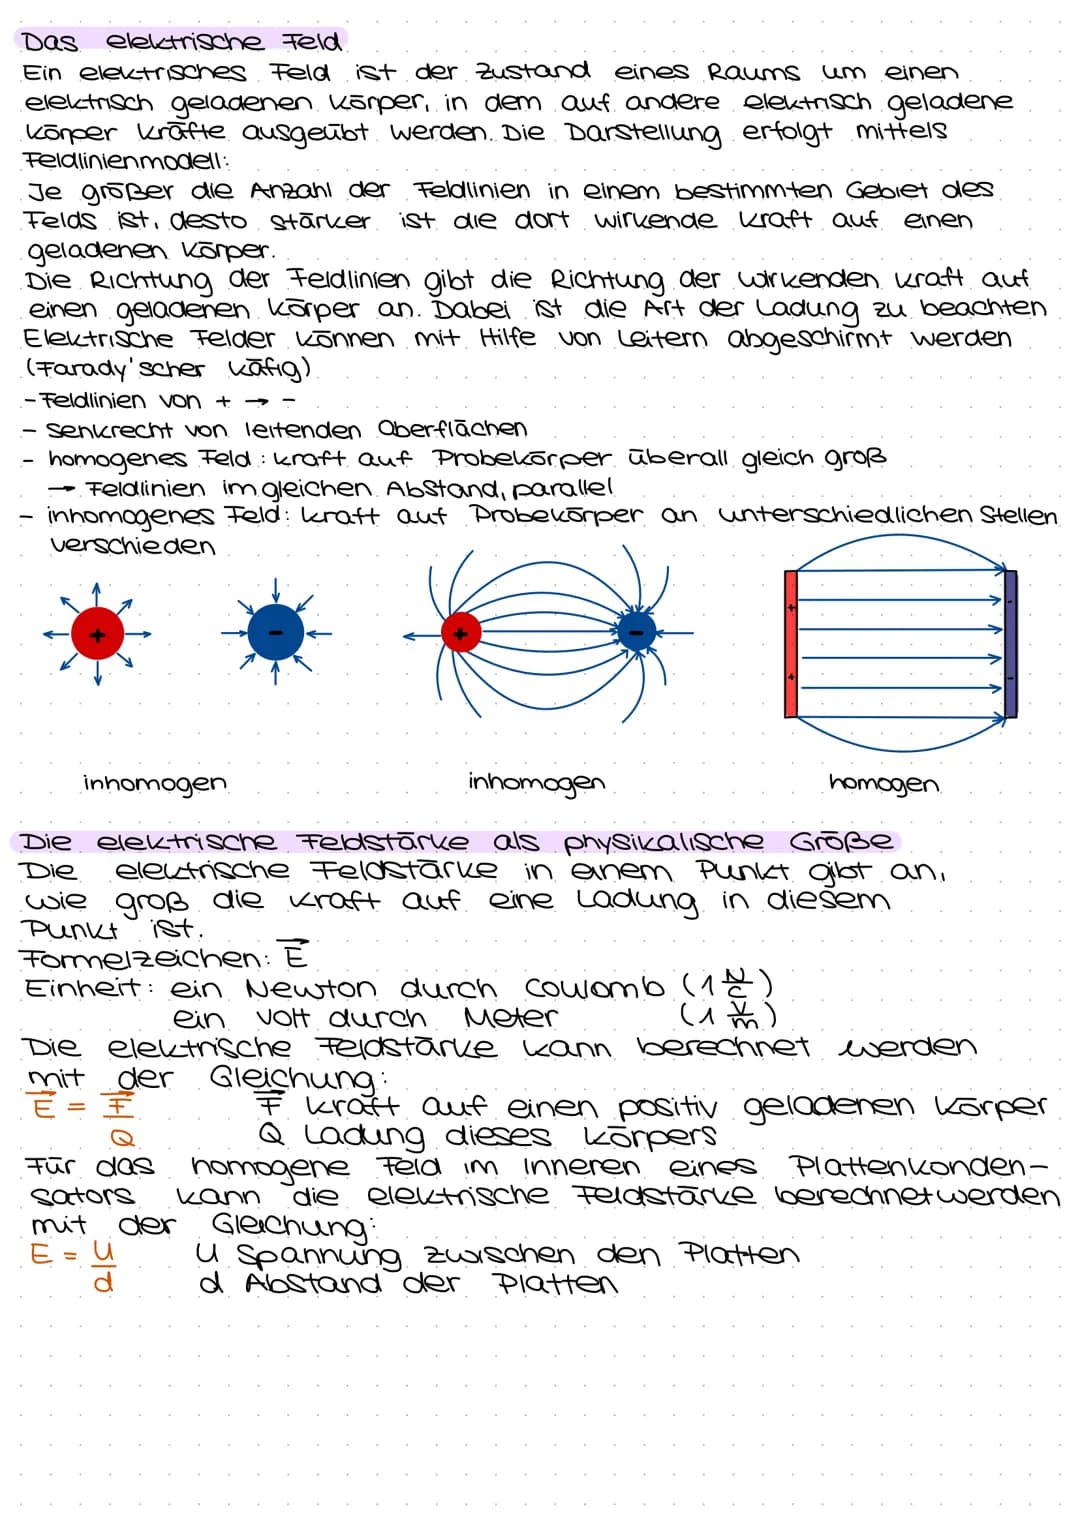 Das elektrische Feld
Ein elektrisches Feld ist der Zustand eines Raums um einen
elektrisch geladenen Körper, in dem auf andere elektrisch geladene
Körper Kräfte ausgeübt werden. Die Darstellung erfolgt mittels
Feldlinienmodell:
Je größer die Anzahl der Feldlinien in einem bestimmten Gebiet des
Felds ist, desto stärker ist die dort wirkende Kraft auf einen
geladenen Körper.
Die Richtung der Feldlinien gibt die Richtung der wirkenden Kraft auf
einen geladenen Körper an. Dabei ist die Art der Ladung zu beachten
Elektrische Felder können mit Hilfe von Leitern abgeschirmt werden
(Farady'scher Käfig)
- Feldlinien von + → -
- senkrecht von leitenden Oberflächen
- homogenes Feld: Kraft auf Probekörper überall gleich groß
→ Feldlinien im gleichen Abstand, parallel
- inhomogenes Feld: Kraft auf Probekörper an unterschiedlichen Stellen
verschieden
+ - + - + -
+ -
inhomogen inhomogen homogen
Die elektrische Feldstärke als physikalische Größe
Die elektrische Feldstärke in einem Punkt gibt an,
wie groß die Kraft auf eine Ladung in diesem
Punkt ist.
Formelzeichen: E⃗
Einheit: ein Newton durch Coulomb (1 N/C)
ein Volt durch Meter (1 V/m)
Die elektrische Feldstärke kann berechnet werden
mit der Gleichung:
E⃗ = F⃗/Q F⃗ Kraft auf einen positiv geladenen Körper
Q Ladung dieses Körpers
Für das homogene Feld im Inneren eines Plattenkonden-
sators kann die elektrische Feldstärke berechnet werden
mit der Gleichung:
E = U/d U Spannung zwischen den Platten
d Abstand der Platten